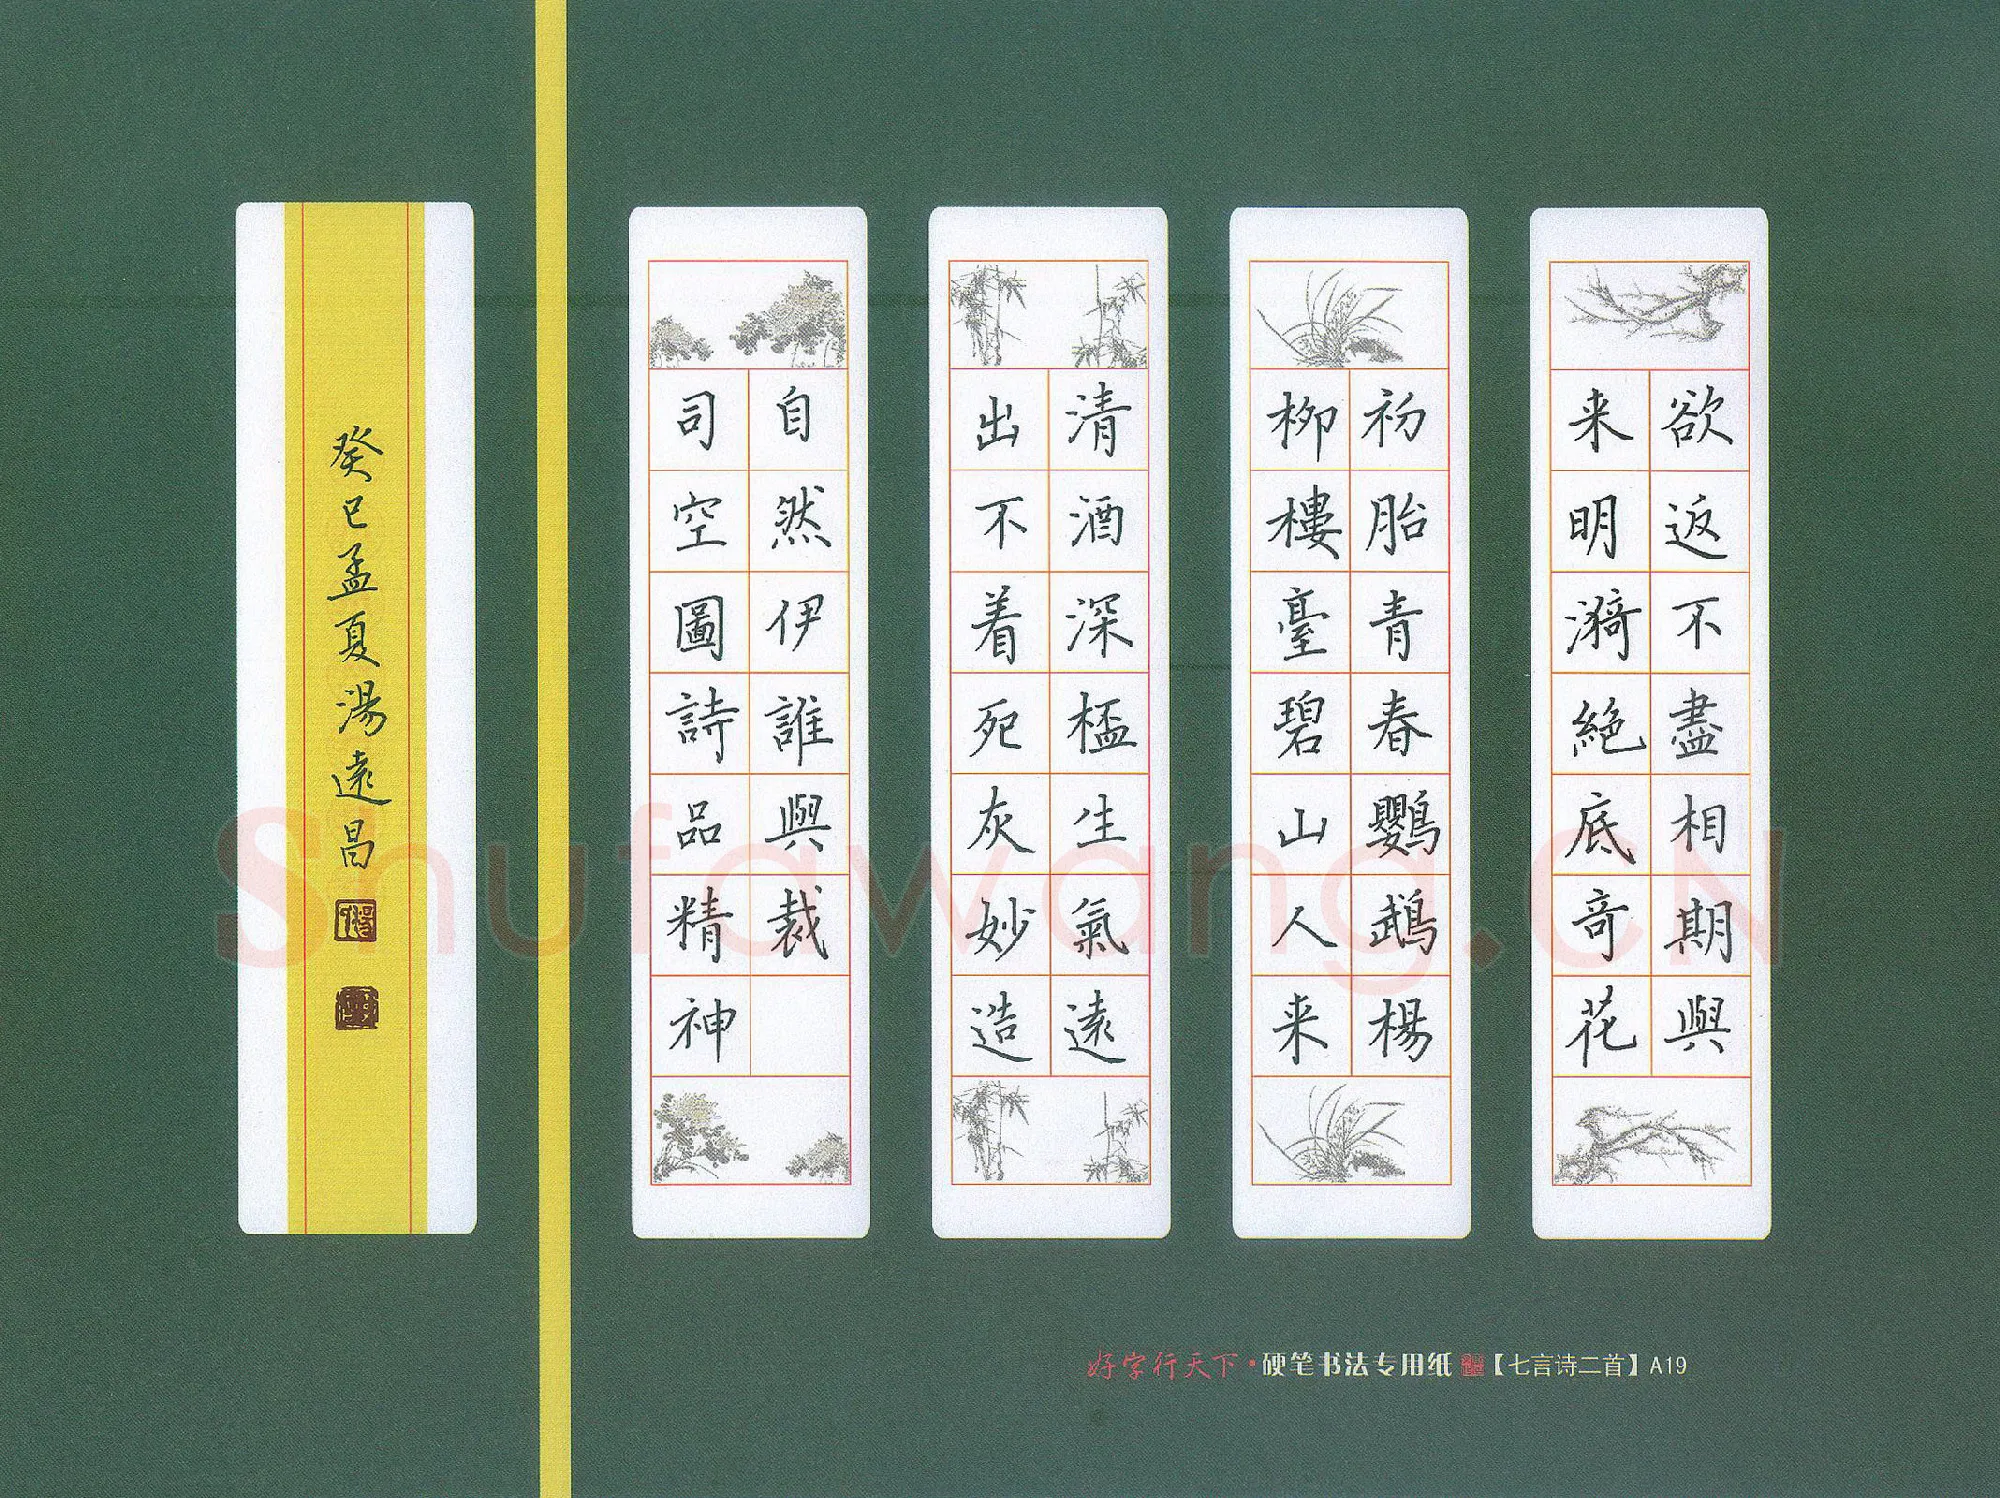 欲返不盡相期與
来明漪絕底奇花
初胎青春鸚鵡楊
柳樓臺碧山人来
清酒深桮生氣遠
出不着死灰妙造
自然伊誰與裁
司空圖詩品精神
癸巳孟夏湯遠昌
好字行天下·硬笔书法专用纸【七言诗二首】A19
Shufawang.CN